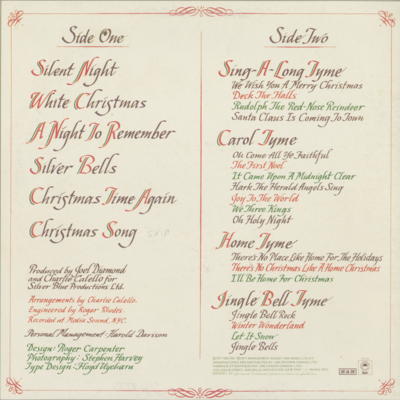 Side One
Silent Night
White Christmas
A Night To Remember
Silver Bells
Christmas Time Again
Christmas Song
Produced by Joel Diamond
and Charlie Calello for
Silver Blue Productions Ltd.
Arrangements by Charlie Calello.
Engineered by Roger Rhodes.
Recorded at Media Sound, NYC.
Personal Management: Harold Davison
Design: Roger Carpenter
Photography: Stephen Harvey
Type Design: Floyd Uyehara
Side Two
Sing-A-Long Tyme
We Wish You A Merry Christmas
Deck The Halls
Rudolph The Red-Nose Reindeer
Santa Claus Is Coming To Town
Carol Tyme
Oh Come All Ye Faithful
The First Noel
It Came Upon A Midnight Clear
Hark The Herald Angels Sing
Joy To The World
We Three Kings
Oh Holy Night
Home Tyme
There's No Place Like Home For The Holidays
There's No Christmas Like A Home Christmas
I'll Be Home For Christmas
Jingle Bell Tyme
Jingle Bell Rock
Winter Wonderland
Let It Snow
Jingle Bells